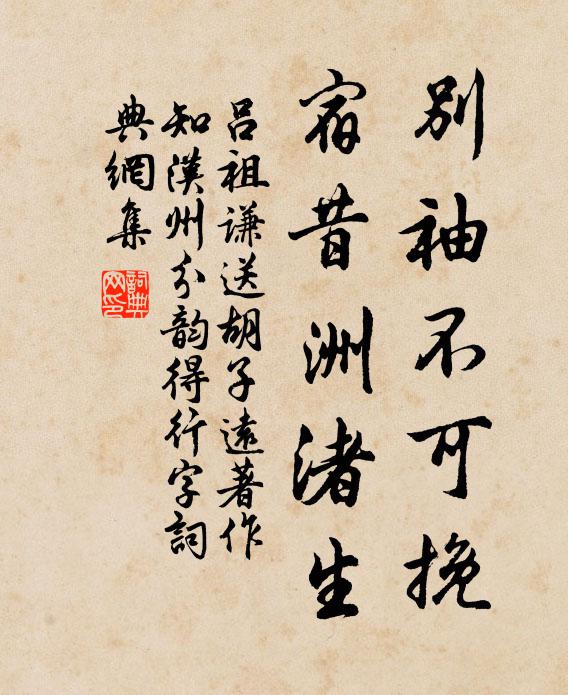 别袖不可挽
宿昔洲渚生
吕祖谦送胡子遠著作
知漢州分韵得行字詞
典網集
詞典網印